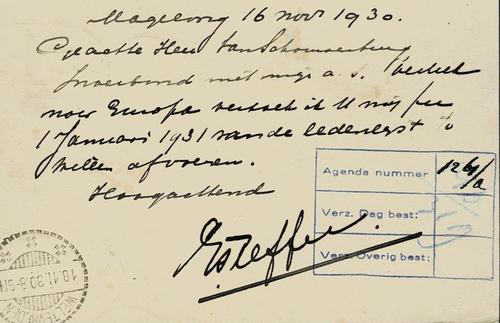 Magelang 16 nov 1930.
Geachte Heer van Schouwenburg
In verband met mijn a.s. vertrek
naar Europa verzoek ik U mij per
1 Januari 1931 van de ledenlijst te
willen afvoeren.
Hoogachtend
Agenda nummer 1261/a
Verz. Dag best:
Verz. Overig best:
18.11.30.8-9
WELTEVREDEN